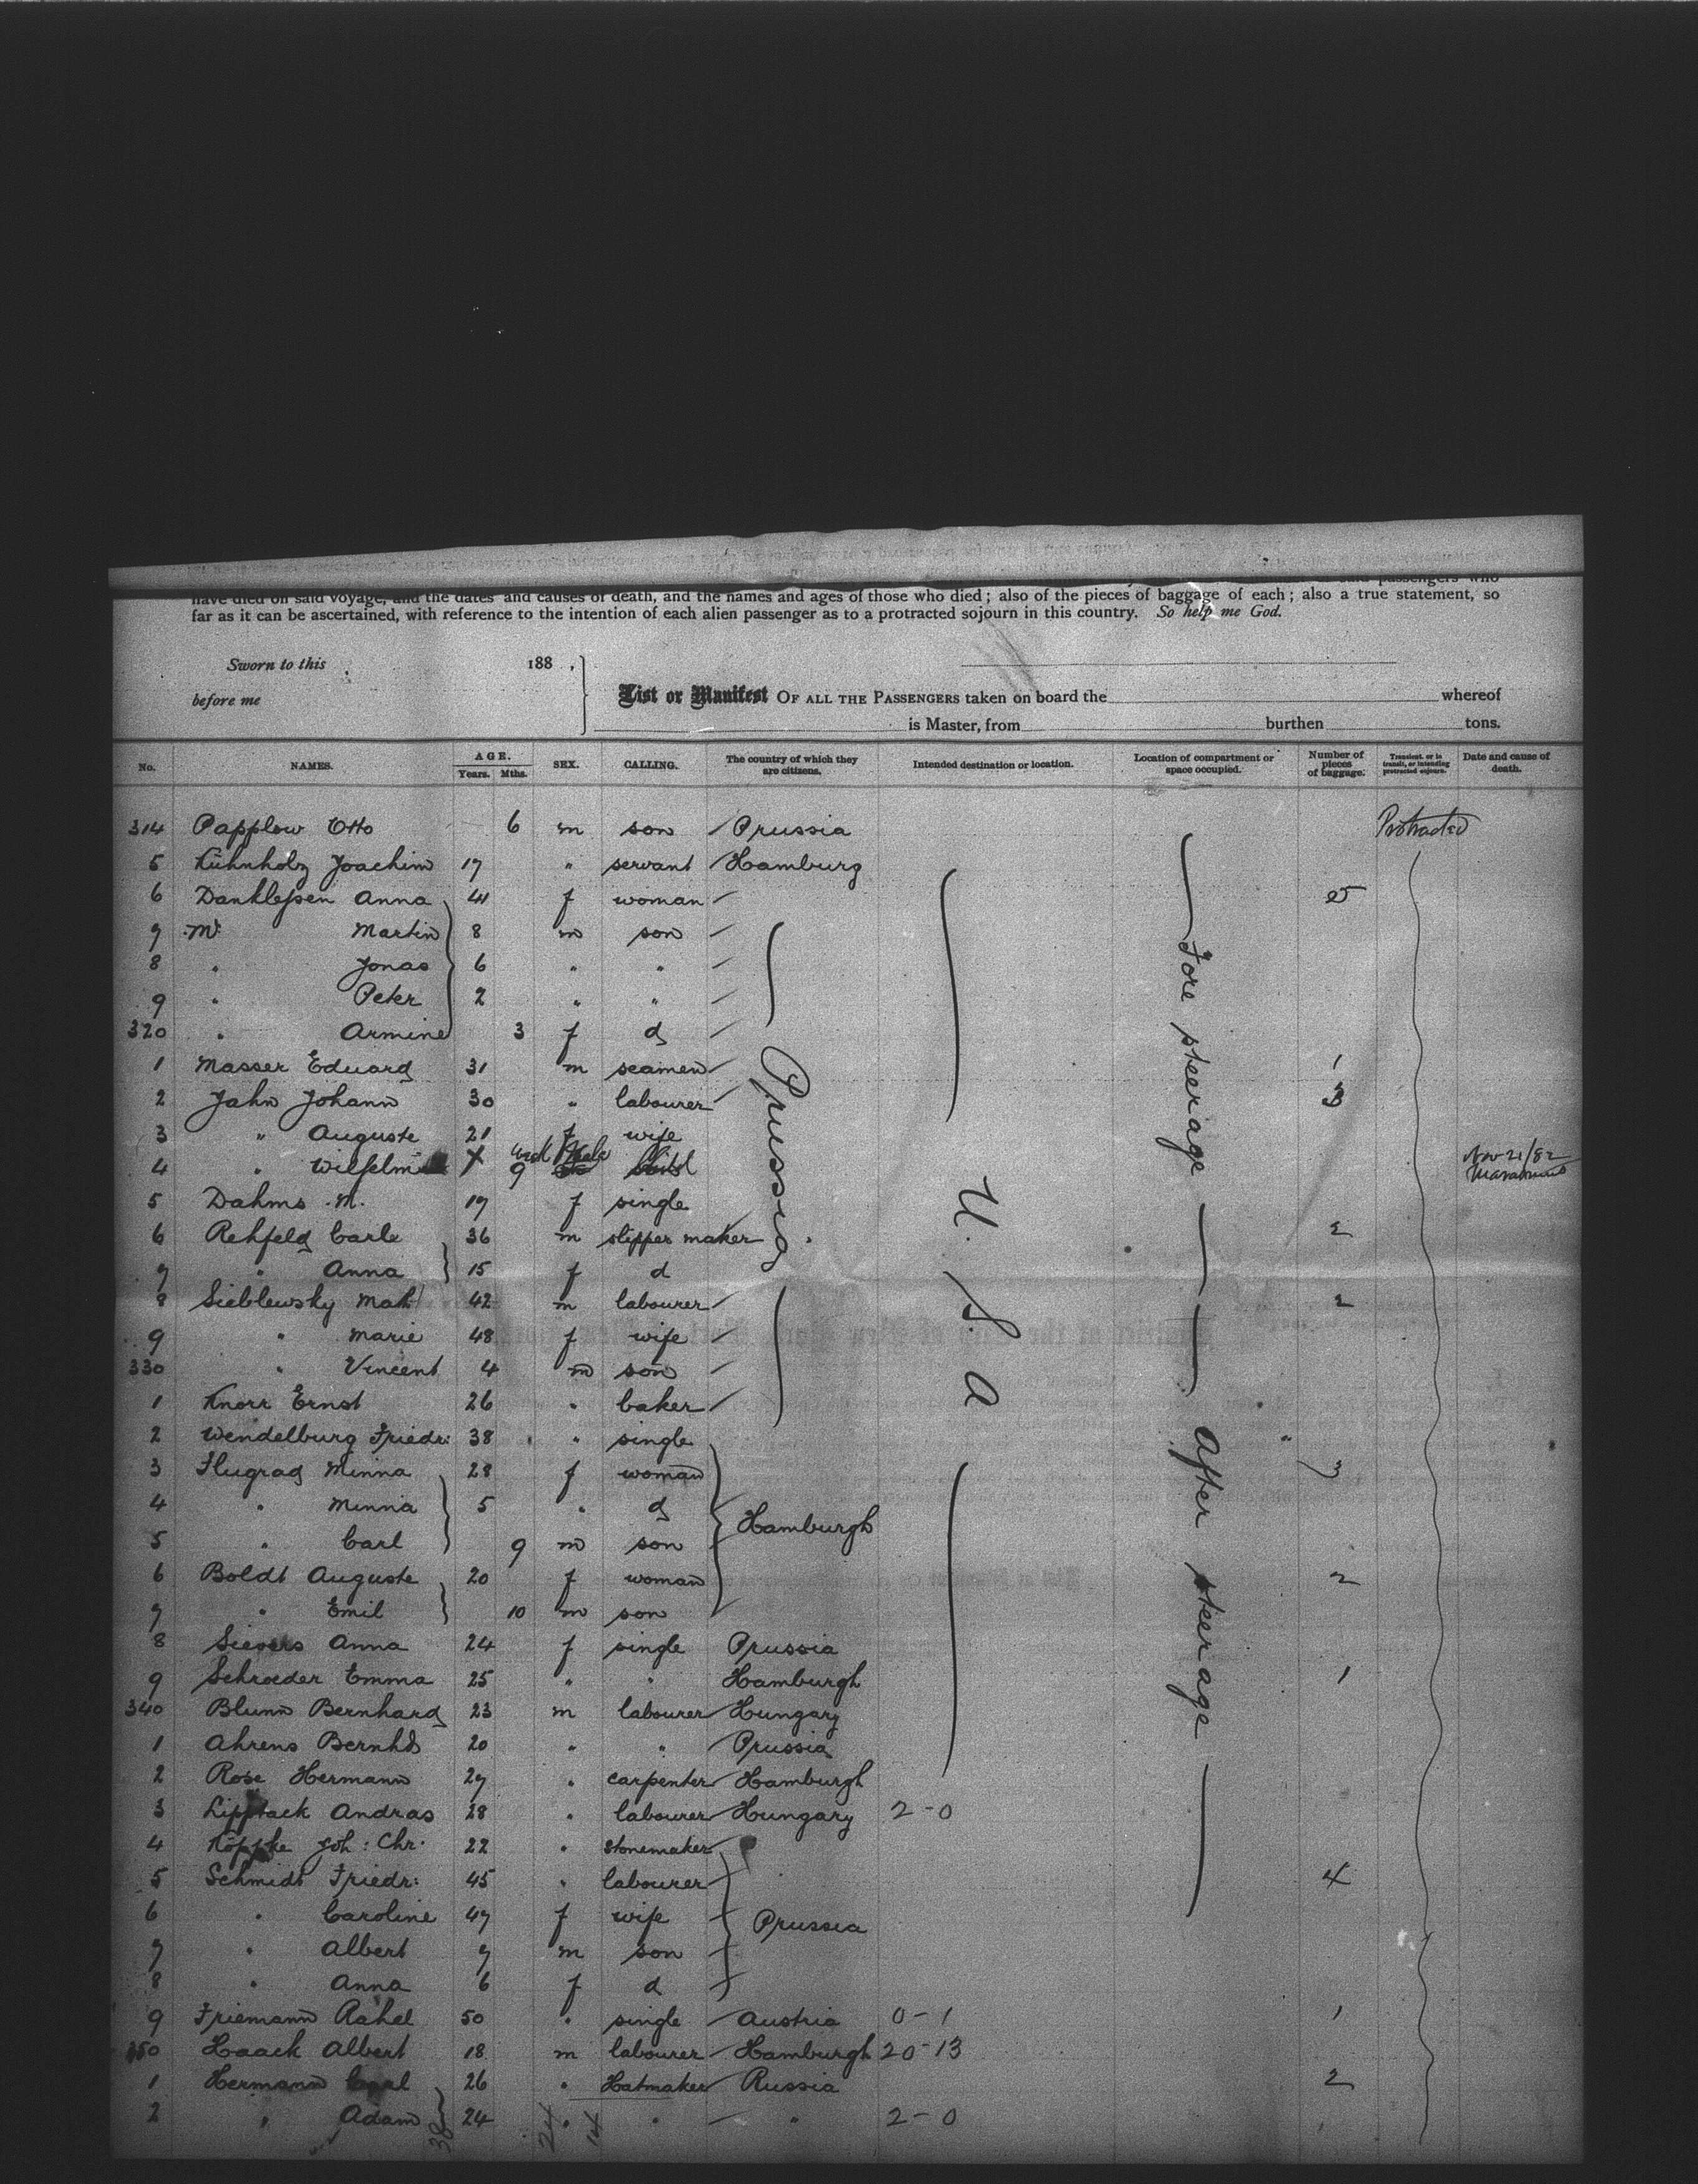 have died on said voyage, and the dates and causes of death, and the names and ages of those who died; also of the pieces of baggage of each; also a true statement, so
far as it can be ascertained, with reference to the intention of each alien passenger as to a protracted sojourn in this country. So help me God.
Sworn to this 188 ,
before me
List or Manifest OF ALL THE PASSENGERS taken on board the whereof
is Master, from burthen tons.
No. NAMES. AGE. Years. Mths. SEX. CALLING. The country of which they are citizens. Intended destination or location. Location of compartment or space occupied. Number of pieces of baggage. Transient, or in transit, or intending protracted sojourn. Date and cause of death.
314 Papplow Otto 6 m son Prussia Protracted
5 Kühnholz Joachim 17 " servant Hamburg
6 Danklefsen Anna 41 f woman 5
7 Martin 8 m son
8 " Jonas 6 " "
9 " Peter 2 " "
320 " Armine 3 f d
1 Masser Eduard 31 m seamen 1
2 Jahn Johann 30 " labourer 3
3 " Auguste 21 f wife
4 " 9 Nov 21/82
5 Dahms M. 19 f single
6 Rehfeld Carle 36 m slipper maker 2
7 " Anna 15 f d
8 Sieblewsky 42 m labourer 2
9 " Marie 48 f wife
330 " Vincent 4 m son
1 Knorr Ernst 26 " baker
2 Wendelburg Friedr: 38 " single
3 Flugrad Minna 28 f woman 3
4 " Minna 5 " d
5 " Carl 9 m son
6 Boldt Auguste 20 f woman 2
7 " Emil 10 m son
8 Sievers Anna 24 f single Prussia
9 Schroeder Emma 25 " " Hamburgh 1
340 Blumn Bernhard 23 m labourer Hungary
1 Ahrens Bernhd 20 " " Prussia
2 Rose Hermann 27 " carpenter Hamburgh
3 Andras 28 " labourer Hungary 2-0
4 Köppke Joh: Chr. 22 " stonemaker
5 Schmidt Friedr: 45 " labourer 4
6 " Caroline 47 f wife Prussia
7 " Albert 7 m son
8 " Anna 6 f d
9 Friemann Rahel 50 " single Austria 0-1 1
350 Haack Albert 18 m labourer Hamburgh 20-13
1 Hermann Carl 26 " Hatmaker Russia 2
2 " Adam 24 " " " 2-0
38 24 14
Prussia
Hamburgh
U. S. A
Fore steerage
After steerage